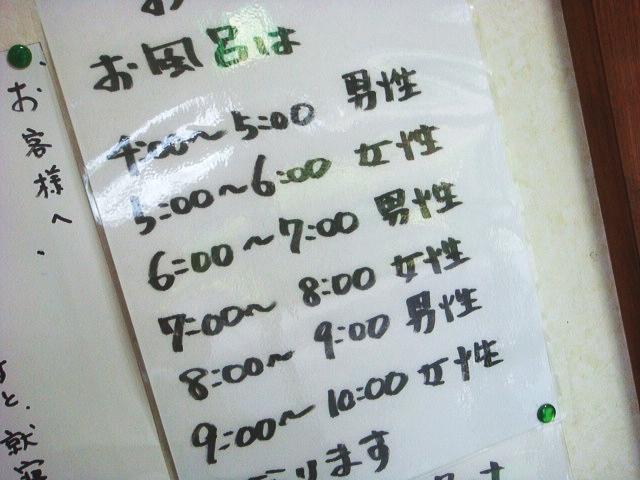 お風呂は
4:00〜5:00 男性
5:00〜6:00 女性
6:00〜7:00 男性
7:00〜8:00 女性
8:00〜9:00 男性
9:00〜10:00 女性
ります
お客様へ
と、就寝